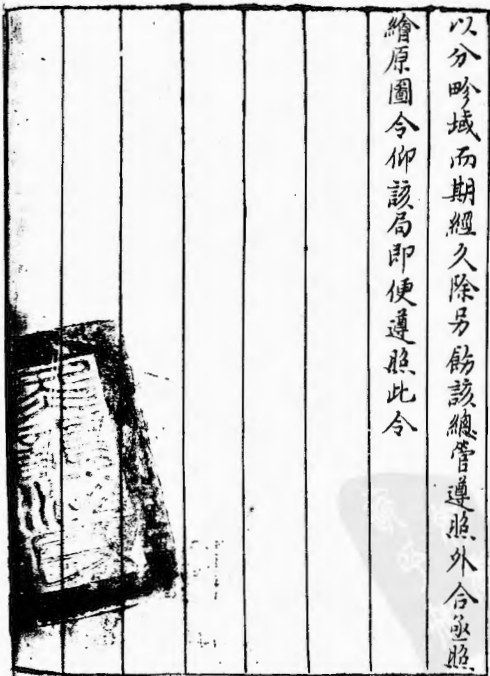 以分畛域而期經久除另飭該總管遵照外合亟照
繪原圖令仰該局即便遵照此令